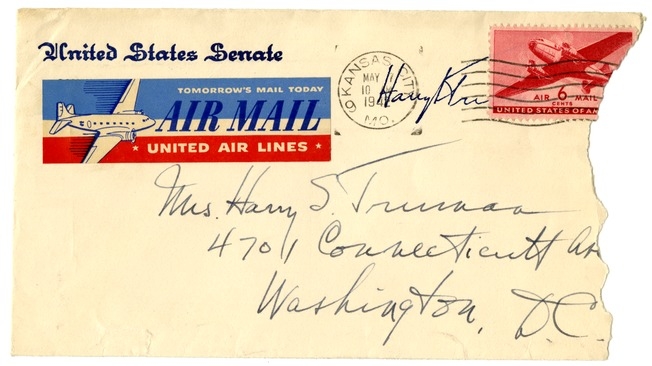 United States Senate
TOMORROW'S MAIL TODAY
AIR MAIL
★ UNITED AIR LINES ★
KANSAS CITY
MAY
10
MO.
Harry S Tru
AIR 6 MAIL
CENTS
UNITED STATES OF AM
Mrs. Harry S. Truman
4701 Connecticutt Av
Washington, D.C.